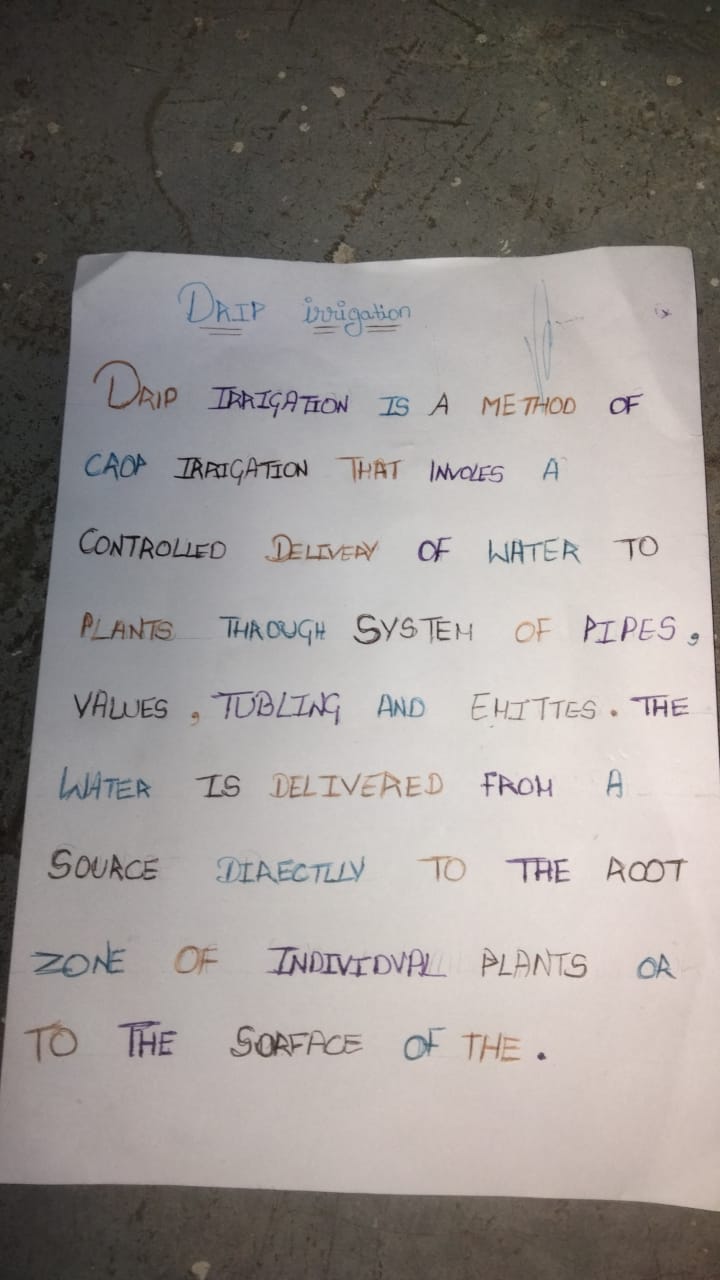 DRIP irrigation
DRIP IRRIGATION IS A METHOD OF
CROP IRRIGATION THAT INVOLES A
CONTROLLED DELIVERY OF WATER TO
PLANTS THROUGH SYSTEM OF PIPES,
VALUES, TUBLING AND EMITTES. THE
WATER IS DELIVERED FROM A
SOURCE DIRECTLLY TO THE ROOT
ZONE OF INDIVIDVAL PLANTS OR
TO THE SORFACE OF THE.